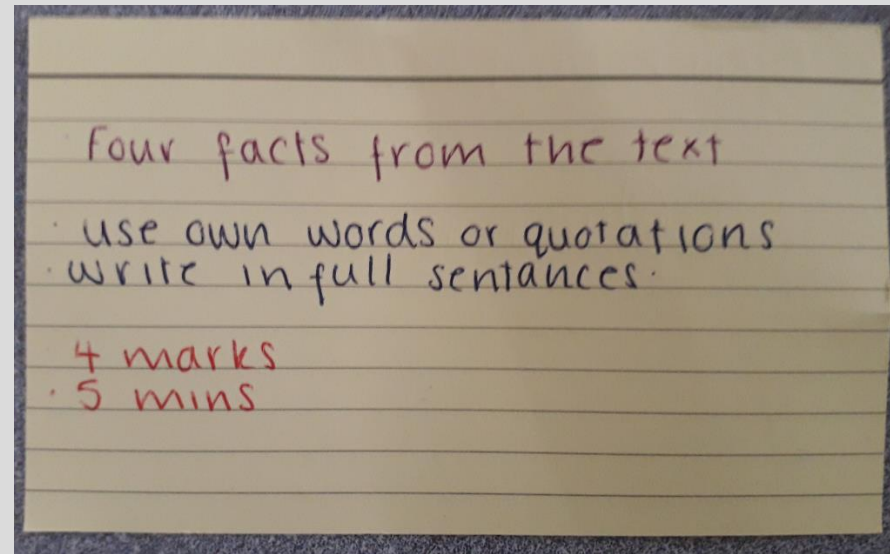 Four facts from the text
· use own words or quotations
· write in full sentances.
4 marks
· 5 mins